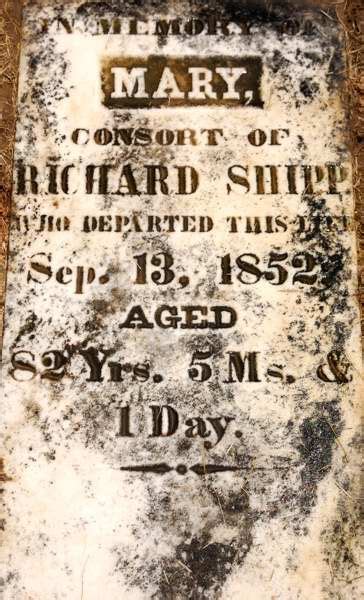 IN MEMORY OF
MARY,
CONSORT OF
RICHARD SHIPP
WHO DEPARTED THIS LIFE
Sep. 13, 1852,
AGED
82 Yrs. 5 Ms. &
1 Day.